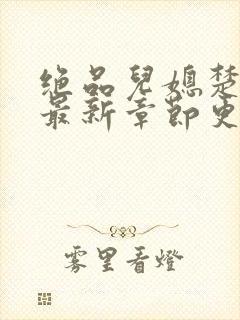 绝品兒媳楚
最新章節史
雾里看燈